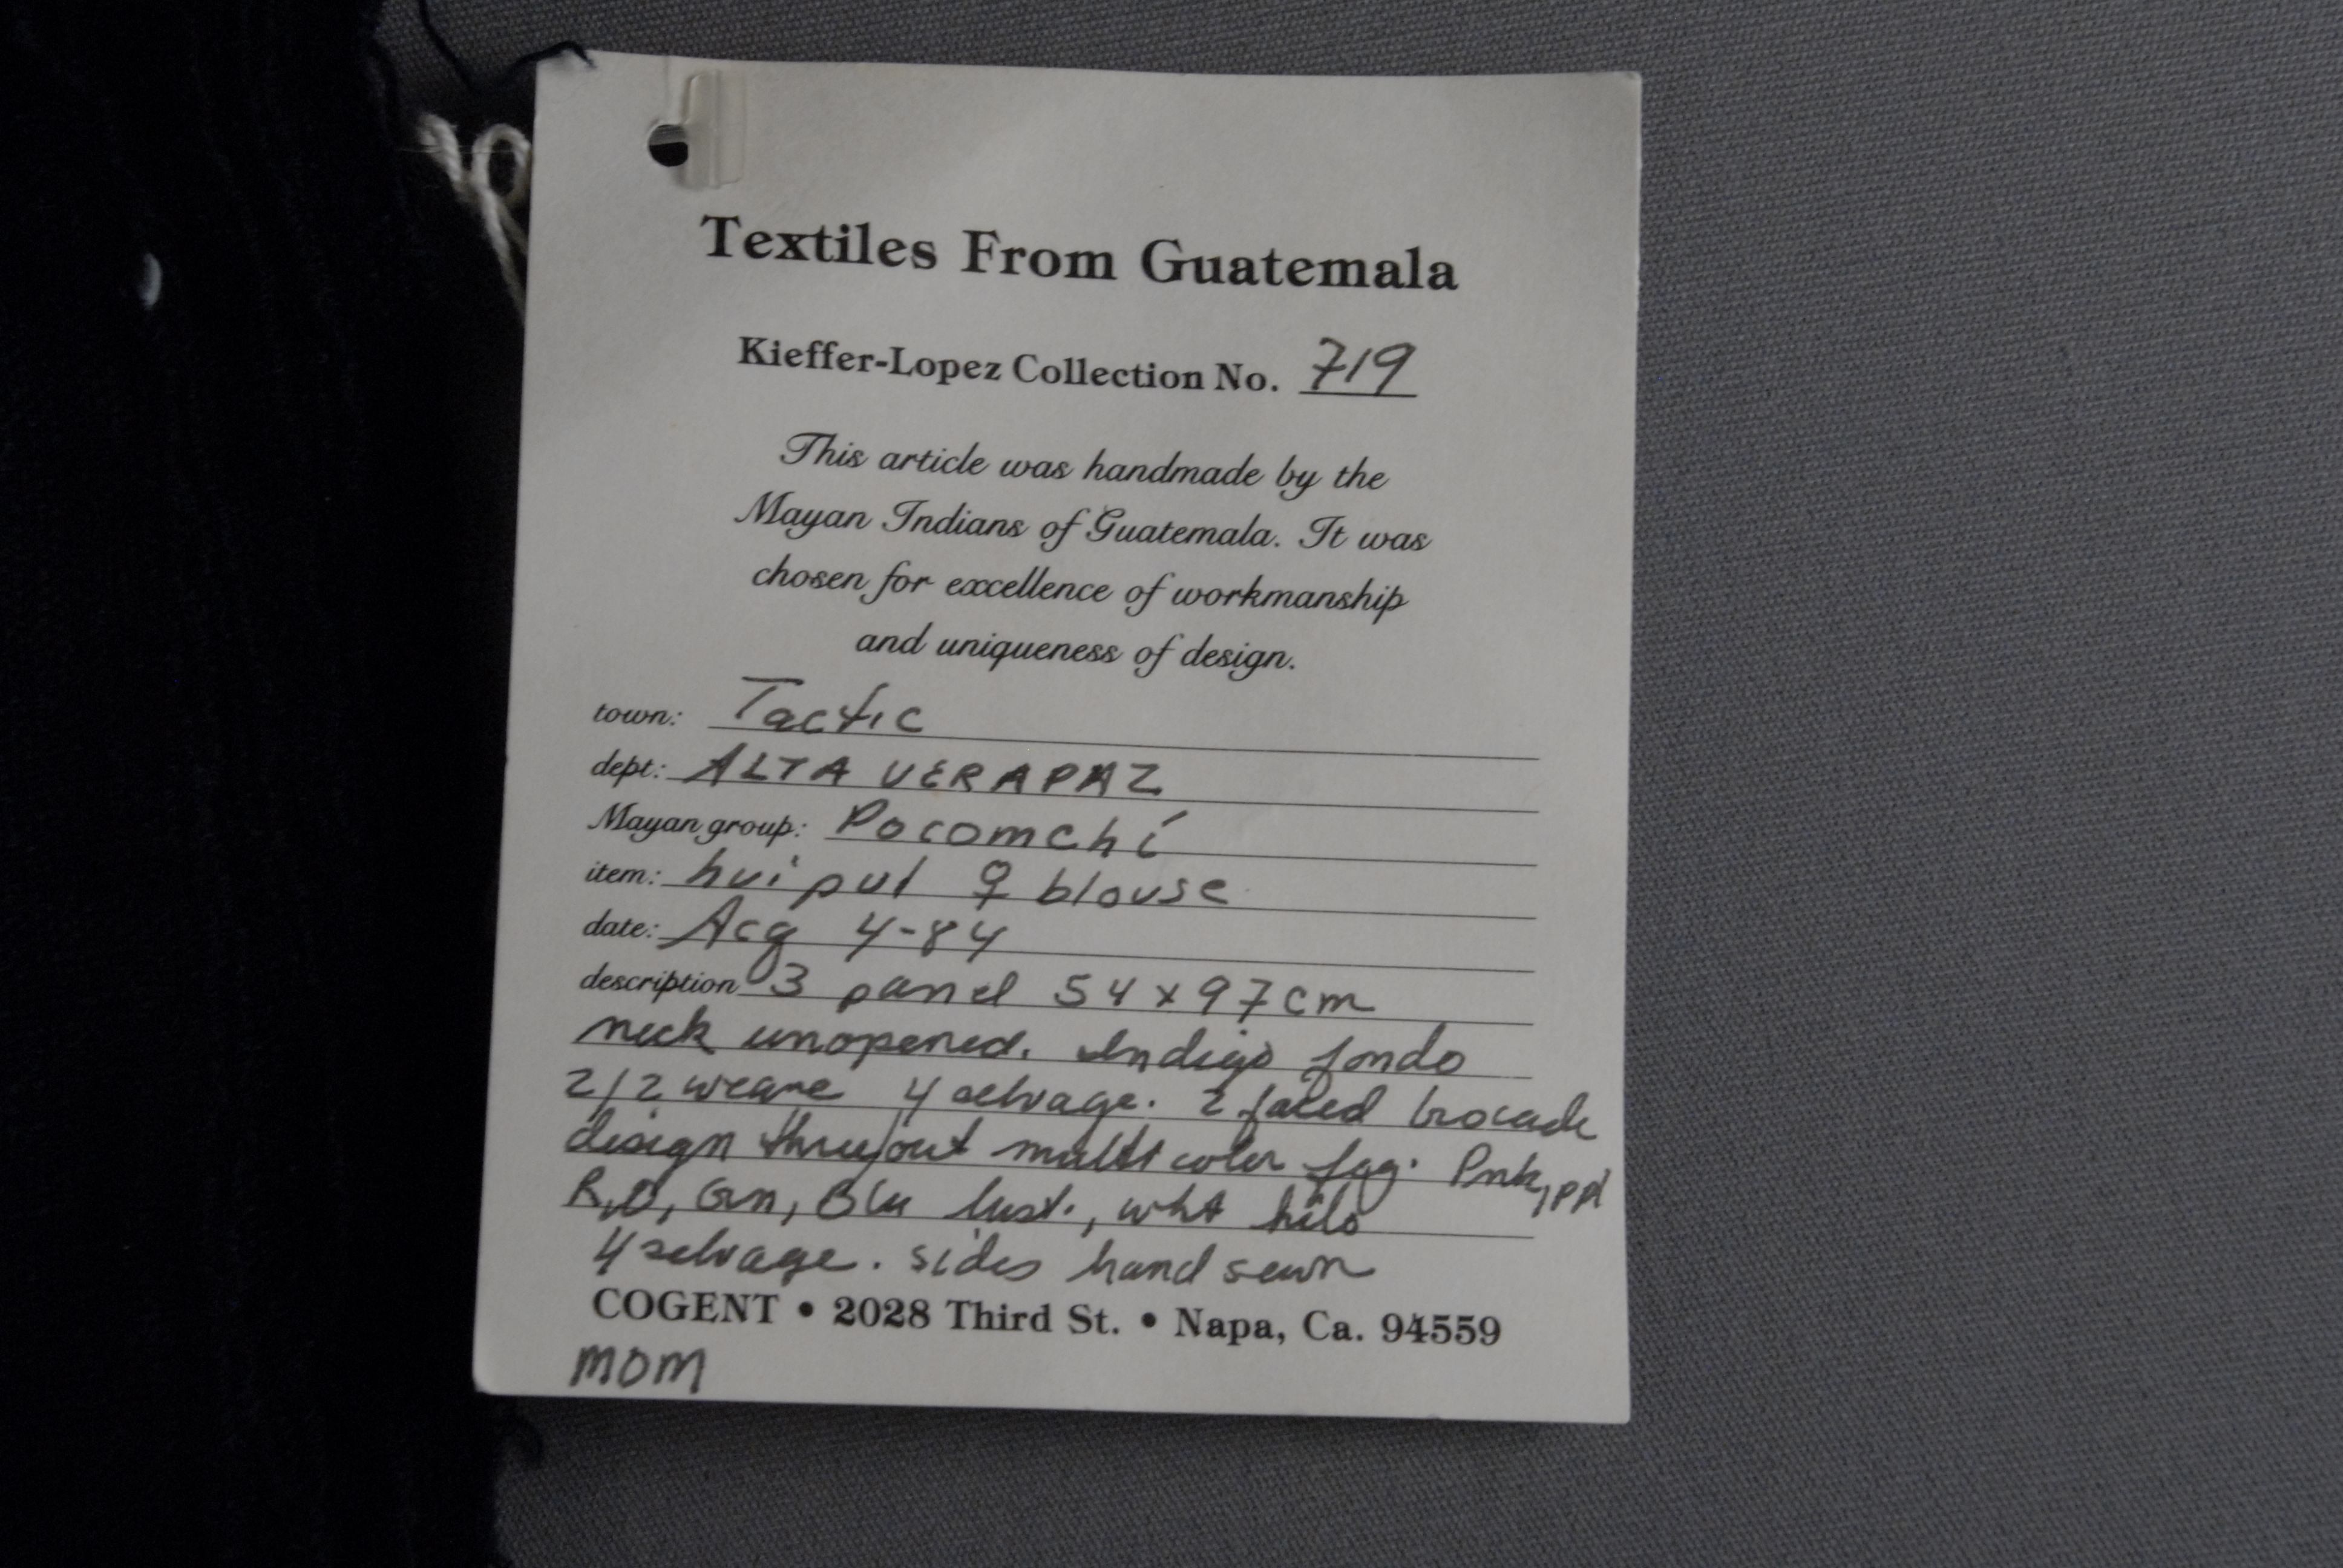 Textiles From Guatemala
Kieffer-Lopez Collection No. 719
This article was handmade by the
Mayan Indians of Guatemala. It was
chosen for excellence of workmanship
and uniqueness of design.
town: Tactic
dept: ALTA VERAPAZ
Mayan group: Pocomchí
item: huipul ♀ blouse
date: Acq 4-84
description 3 panel 54 x 97cm
neck unopened. Indigo fondo
2/2 weave 4 selvage. 2 faced brocade
design thru/out multi color fig. Pnk, ppl
R, O, Gn, Blu lust., wht hilo
4 selvage. sides hand sewn
COGENT • 2028 Third St. • Napa, Ca. 94559
MOM